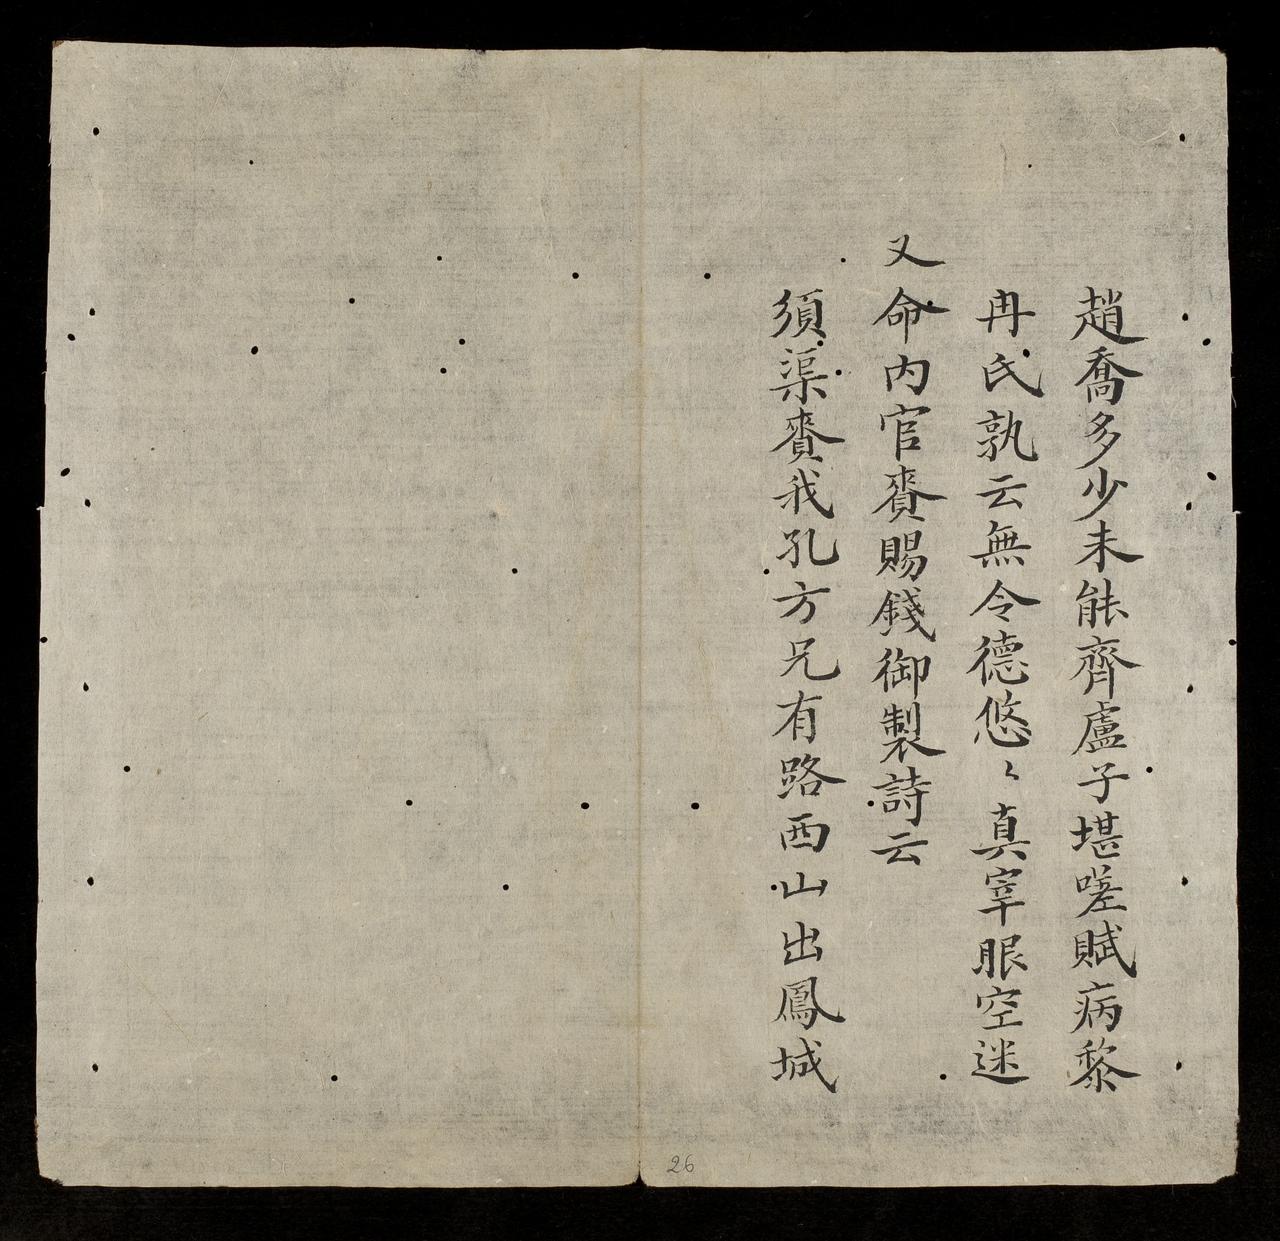 趙喬多少未能齊盧子堪嗟賦病黎
冉氏孰云無令德悠〻真宰眼空迷
又命内官賚賜錢御製詩云
須渠賚我孔方兄有路西山出鳳城
26